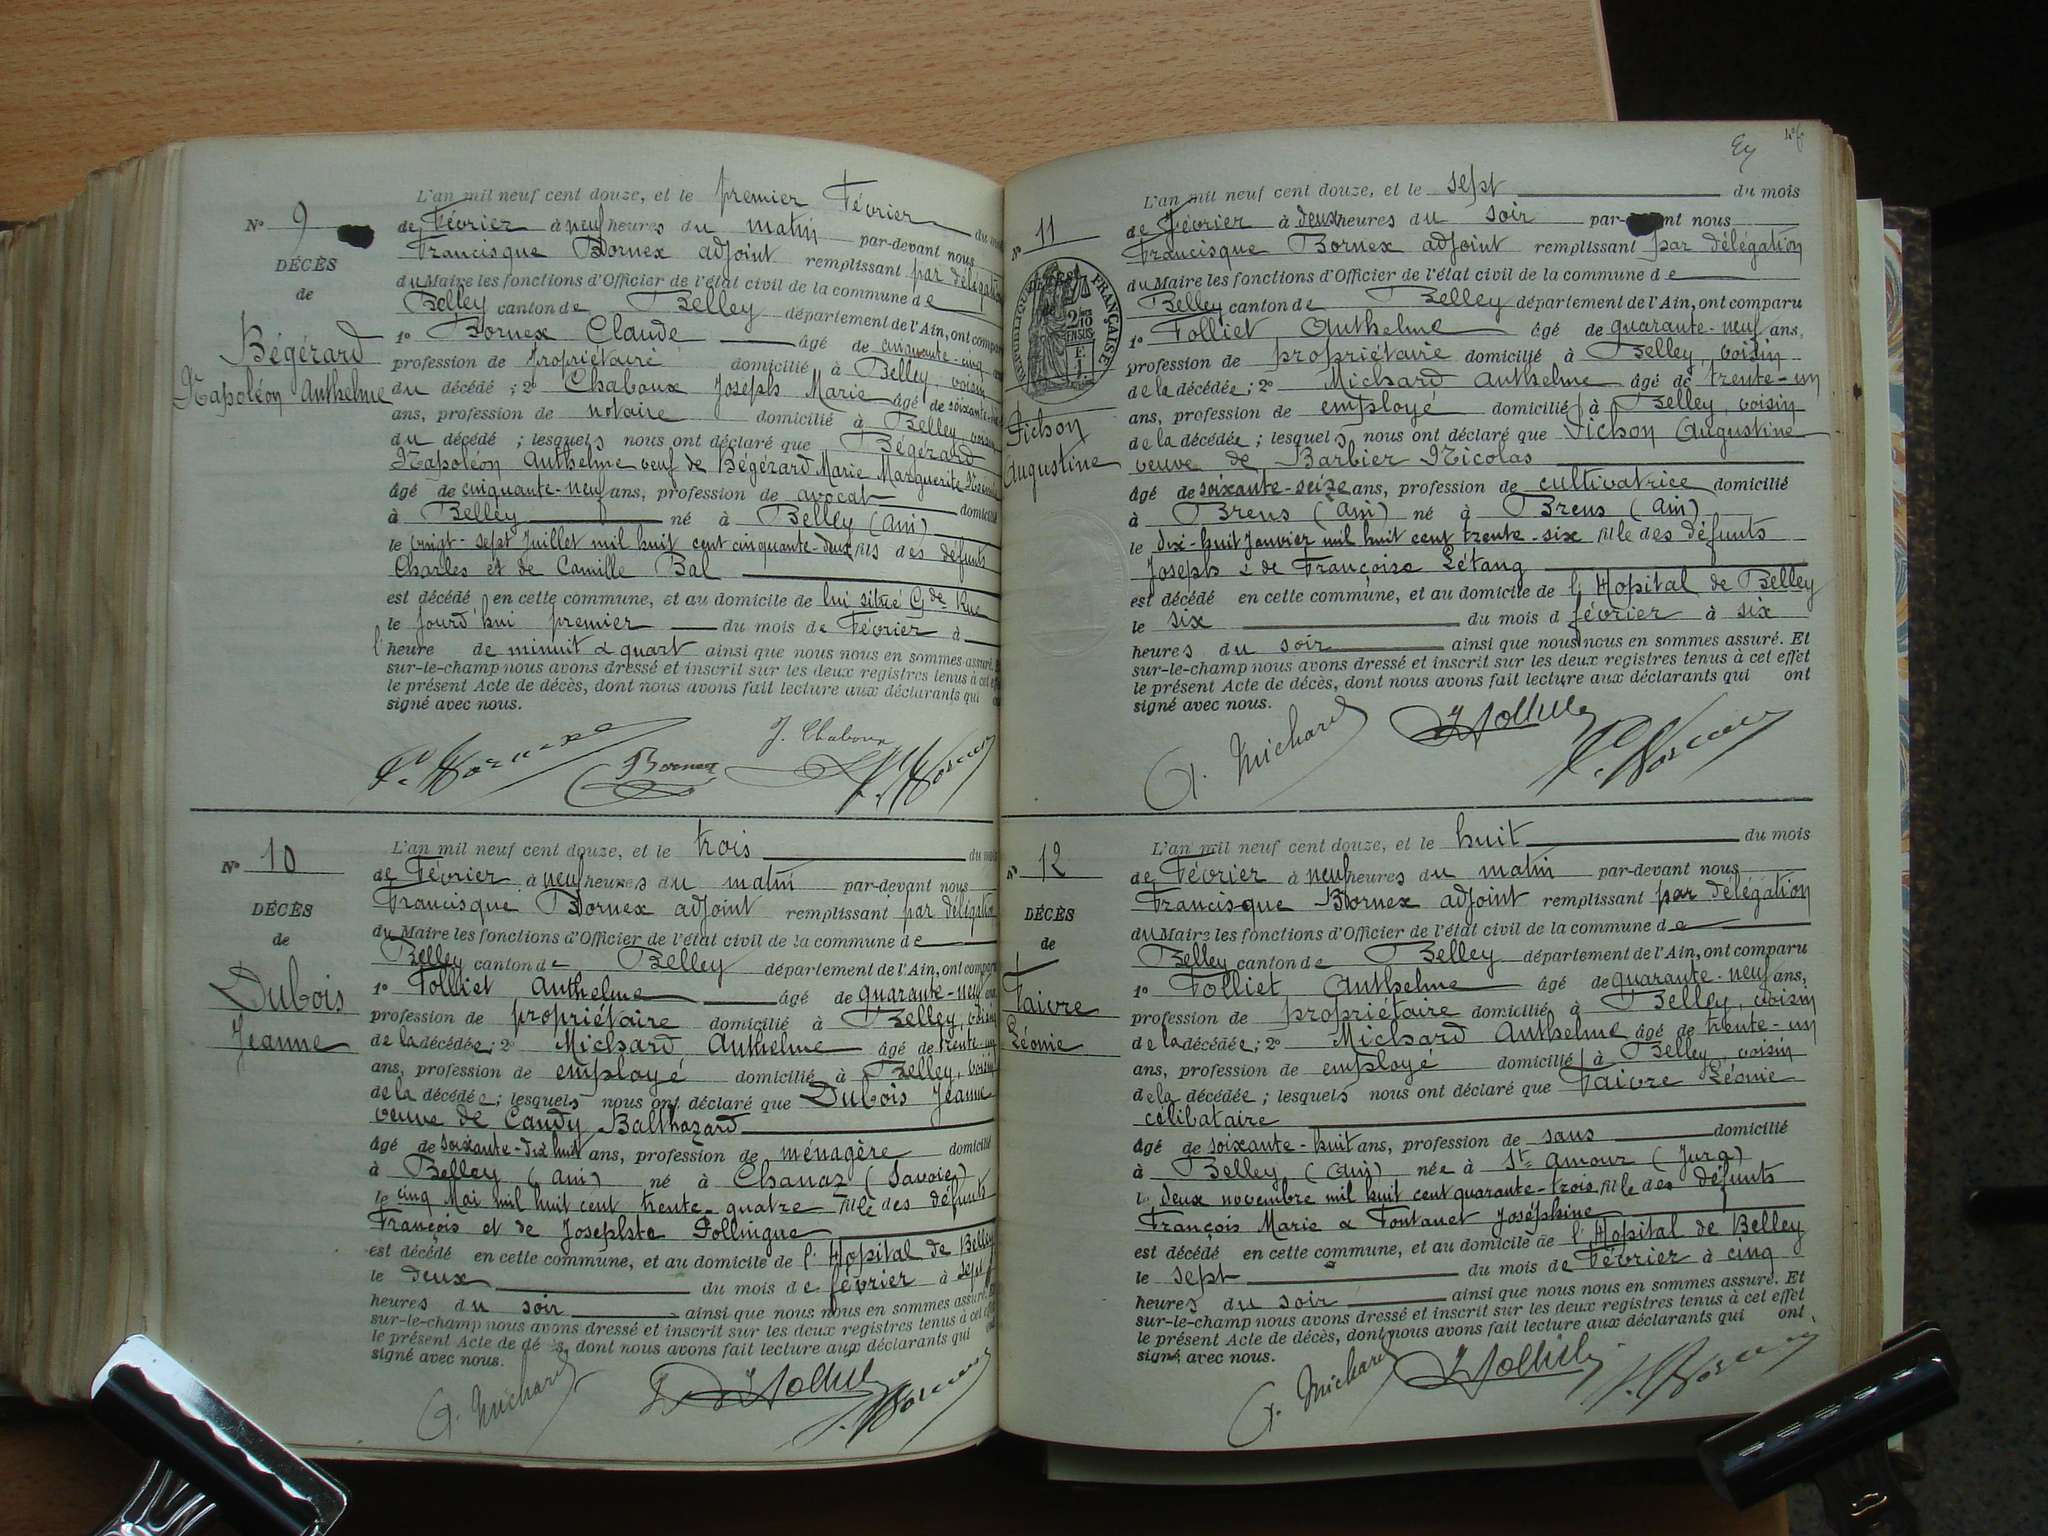 L'an mil neuf cent douze, et le premier Février
N° 9
de Février à neuf heures du matin par-devant nous
Francisque Bornex adjoint remplissant par délégation
DÉCÈS
du Maire les fonctions d'Officier de l'état civil de la commune de
de
Belley canton de Belley département de l'Ain, ont comparu
1° Bornex Claude âgé de cinquante-cinq
Bégérard
profession de propriétaire domicilié à Belley, voisin
Napoléon Anthelme
du décédé ; 2° Chaboux Joseph Marie âgé de soixante
ans, profession de notaire domicilié à Belley, voisin
du décédé ; lesquels nous ont déclaré que Bégérard
Napoléon Anthelme veuf de Bégérard Marie Marguerite
âgé de cinquante-neuf ans, profession de avocat domicilié
à Belley né à Belley (Ain)
le vingt-sept Juillet mil huit cent cinquante-deux fils des défunts
Charles et de Camille Bal
est décédé en cette commune, et au domicile de lui situé Gde Rue
le jourd'hui premier du mois de Février à
l'heure de minuit & quart ainsi que nous nous en sommes assuré.
sur-le-champ nous avons dressé et inscrit sur les deux registres tenus à cet effet
le présent Acte de décès, dont nous avons fait lecture aux déclarants qui
signé avec nous.
J. Chaboux
Bornex
L'an mil neuf cent douze, et le trois du mois
N° 10
de Février à neuf heures du matin par-devant nous
Francisque Bornex adjoint remplissant par délégation
DÉCÈS
du Maire les fonctions d'Officier de l'état civil de la commune de
de
Belley canton de Belley département de l'Ain, ont comparu
1° Folliet Anthelme âgé de quarante-neuf ans
Dubois
profession de propriétaire domicilié à Belley, voisin
Jeanne
de la décédée ; 2° Michard Anthelme âgé de trente-un
ans, profession de employé domicilié à Belley, voisin
de la décédée ; lesquels nous ont déclaré que Dubois Jeanne
veuve de Candy Balthazard
âgé de soixante-dix huit ans, profession de ménagère domicilié
à Belley (Ain) né à Chanaz (Savoie)
le cinq Mai mil huit cent trente-quatre fille des défunts
François et de Josephte Pollingue
est décédé en cette commune, et au domicile de l'Hopital de Belley
le deux du mois de février à sept
heures du soir ainsi que nous nous en sommes assuré.
sur-le-champ nous avons dressé et inscrit sur les deux registres tenus à cet effet
le présent Acte de décès, dont nous avons fait lecture aux déclarants qui
signé avec nous.
A. Michard
46
L'an mil neuf cent douze, et le sept du mois
N° 11
de Février à deux heures du soir par-devant nous
Francisque Bornex adjoint remplissant par délégation
du Maire les fonctions d'Officier de l'état civil de la commune de
RÉPUBLIQUE FRANÇAISE
Belley canton de Belley département de l'Ain, ont comparu
1° Folliet Anthelme âgé de quarante-neuf ans,
profession de propriétaire domicilié à Belley, voisin
de la décédée ; 2° Michard Anthelme âgé de trente-un
ans, profession de employé domicilié à Belley, voisin
Pichon
Augustine
de la décédée ; lesquels nous ont déclaré que Pichon Augustine
veuve de Barbier Nicolas
âgé de soixante-seize ans, profession de cultivatrice domicilié
à Brens (Ain) né à Brens (Ain)
le dix-huit Janvier mil huit cent trente-six fille des défunts
Joseph & de Françoise Létang
est décédé en cette commune, et au domicile de l'Hopital de Belley
le six du mois d février à six
heures du soir ainsi que nous nous en sommes assuré. Et
sur-le-champ nous avons dressé et inscrit sur les deux registres tenus à cet effet
le présent Acte de décès, dont nous avons fait lecture aux déclarants qui ont
signé avec nous.
A. Michard
L'an mil neuf cent douze, et le huit du mois
N° 12
de Février à neuf heures du matin par-devant nous
Francisque Bornex adjoint remplissant par délégation
DÉCÈS
du Maire les fonctions d'Officier de l'état civil de la commune de
de
Belley canton de Belley département de l'Ain, ont comparu
1° Folliet Anthelme âgé de quarante-neuf ans,
Faivre
profession de propriétaire domicilié à Belley, voisin
Léonie
de la décédée ; 2° Michard Anthelme âgé de trente-un
ans, profession de employé domicilié à Belley, voisin
de la décédée ; lesquels nous ont déclaré que Faivre Léonie
célibataire
âgé de soixante-huit ans, profession de sans domicilié
à Belley (Ain) née à St Amour (Jura)
le deux novembre mil huit cent quarante-trois fille des défunts
François Marie & Fontanet Joséphine
est décédé en cette commune, et au domicile de l'Hopital de Belley
le sept du mois de Février à cinq
heures du soir ainsi que nous nous en sommes assuré. Et
sur-le-champ nous avons dressé et inscrit sur les deux registres tenus à cet effet
le présent Acte de décès, dont nous avons fait lecture aux déclarants qui ont
signé avec nous.
A. Michard